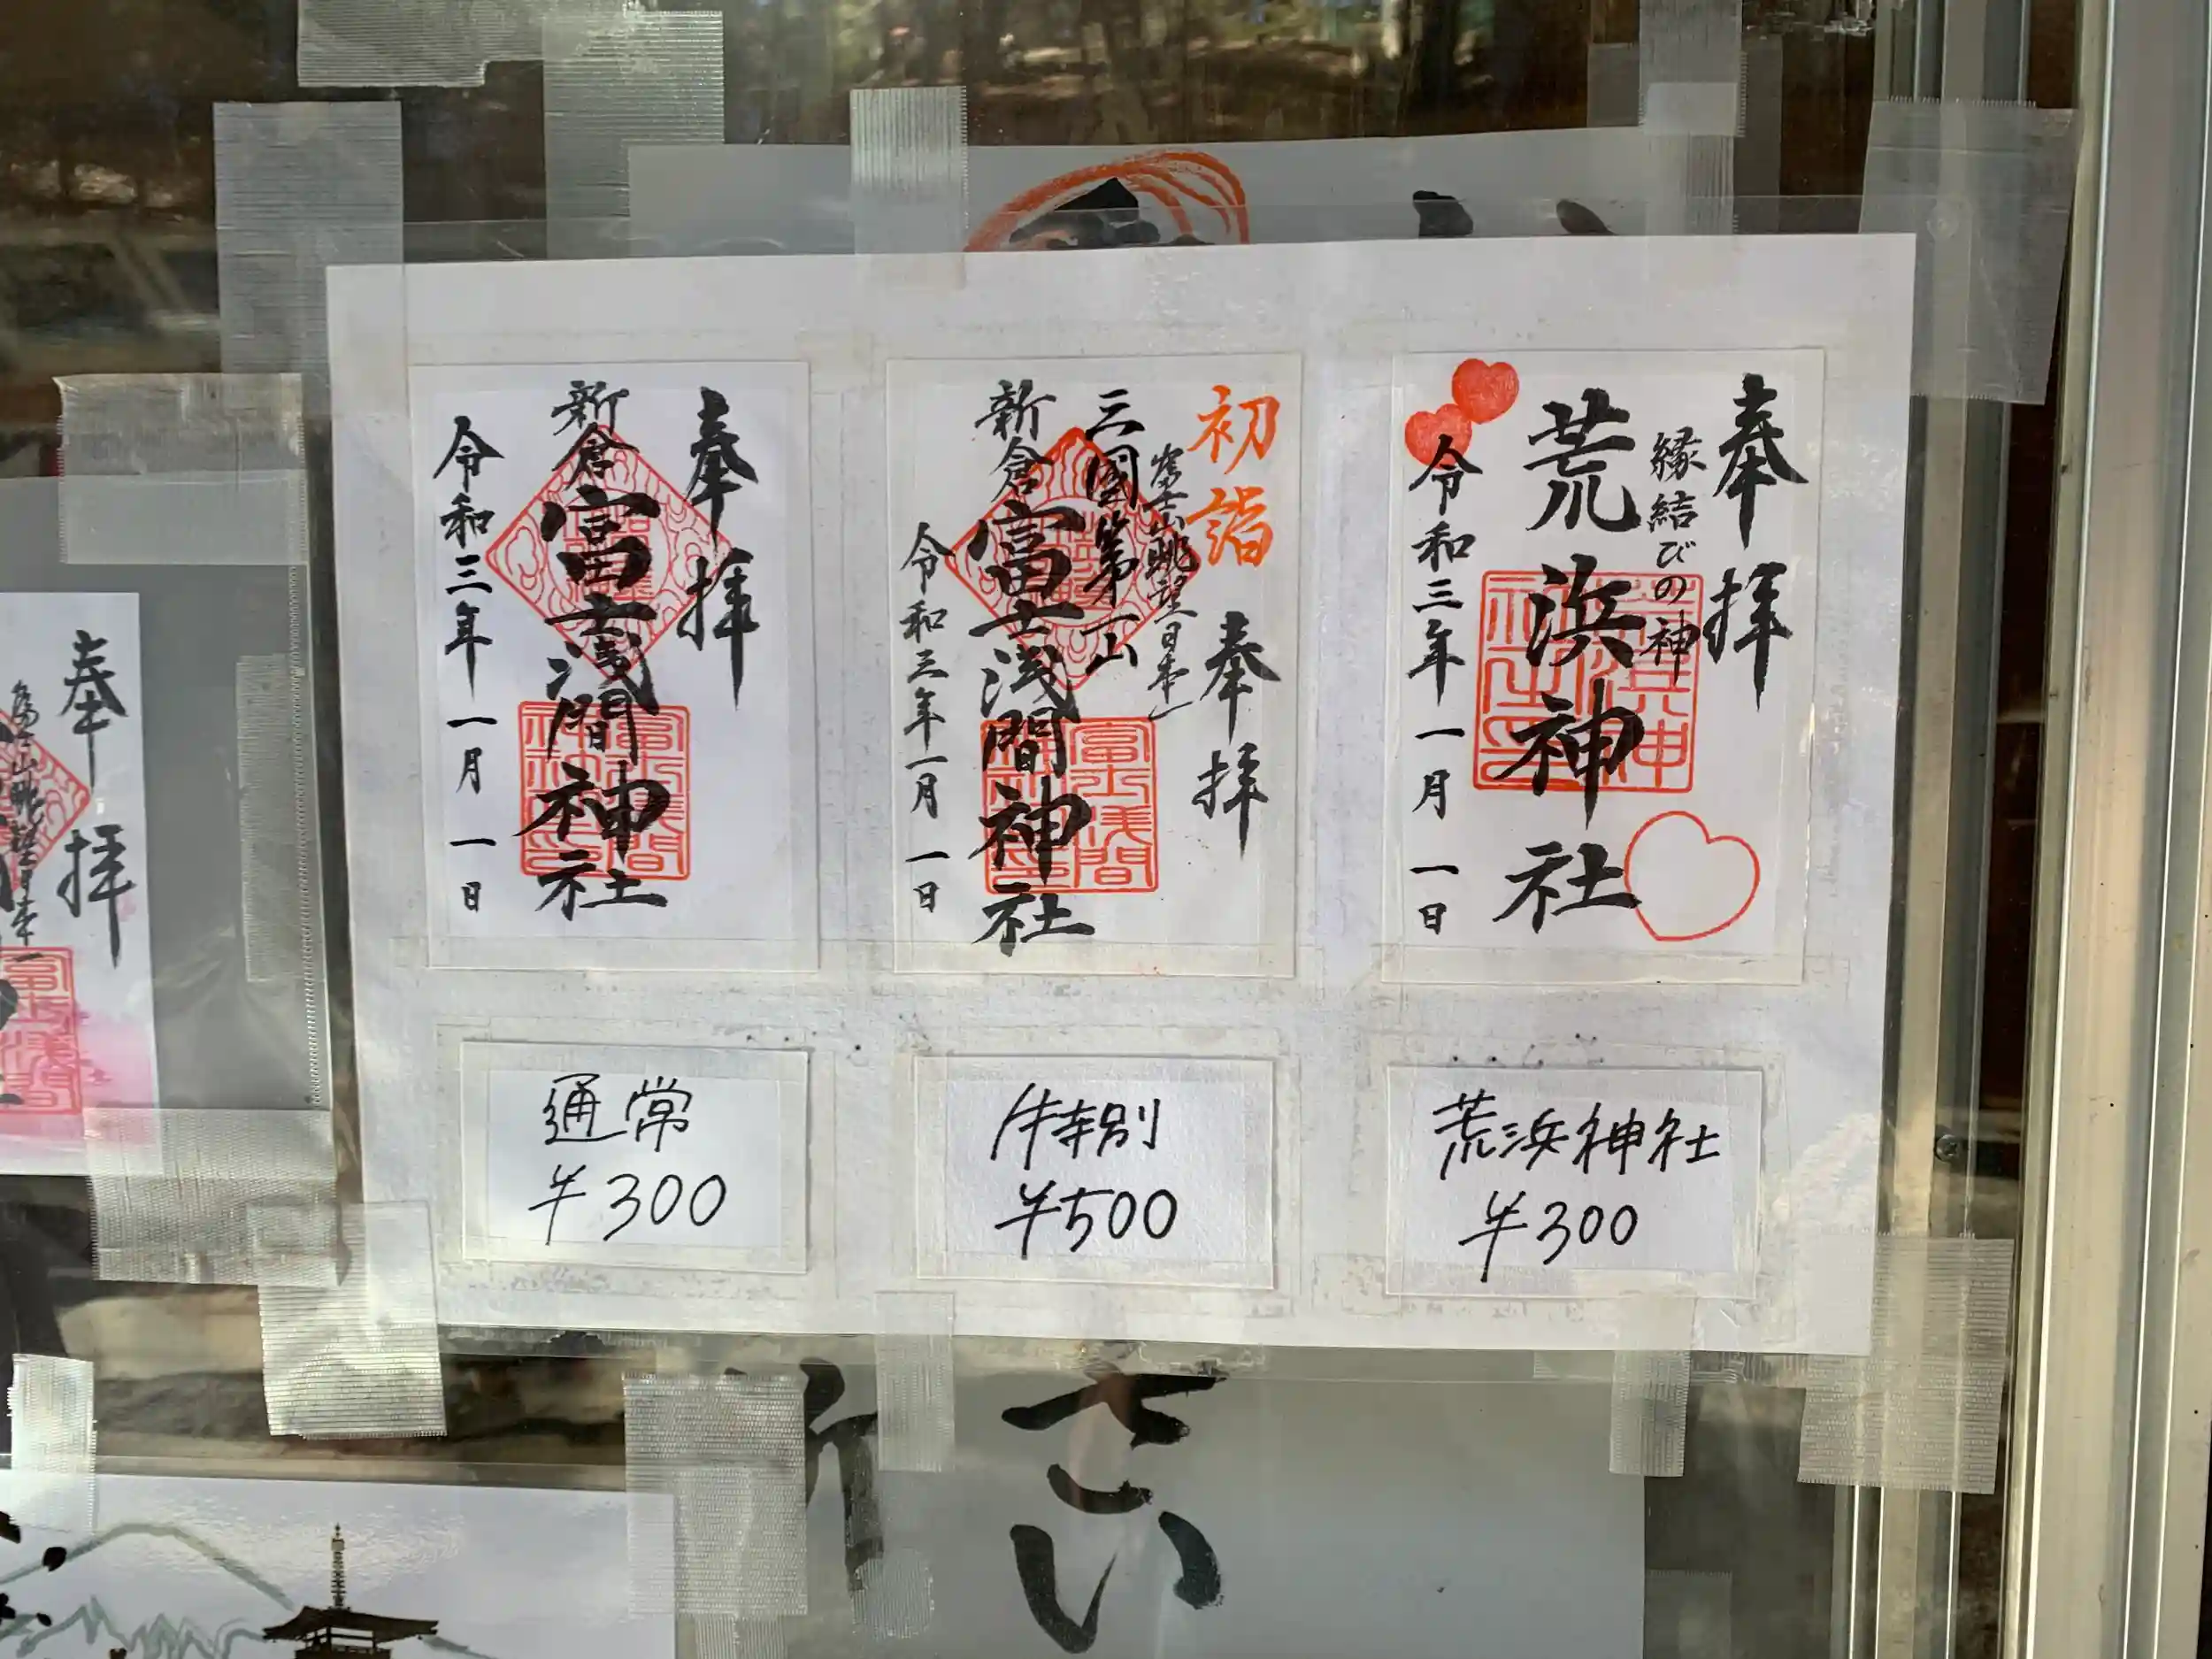 奉拝
新倉富士浅間神社
令和三年一月一日
初詣
奉拝
富士山眺望日本一
三國第一山
新倉富士浅間神社
令和三年一月一日
奉拝
縁結びの神
荒浜神社
令和三年一月一日
通常
¥300
特別
¥500
荒浜神社
¥300
奉拝
富士山眺望日本一
さい